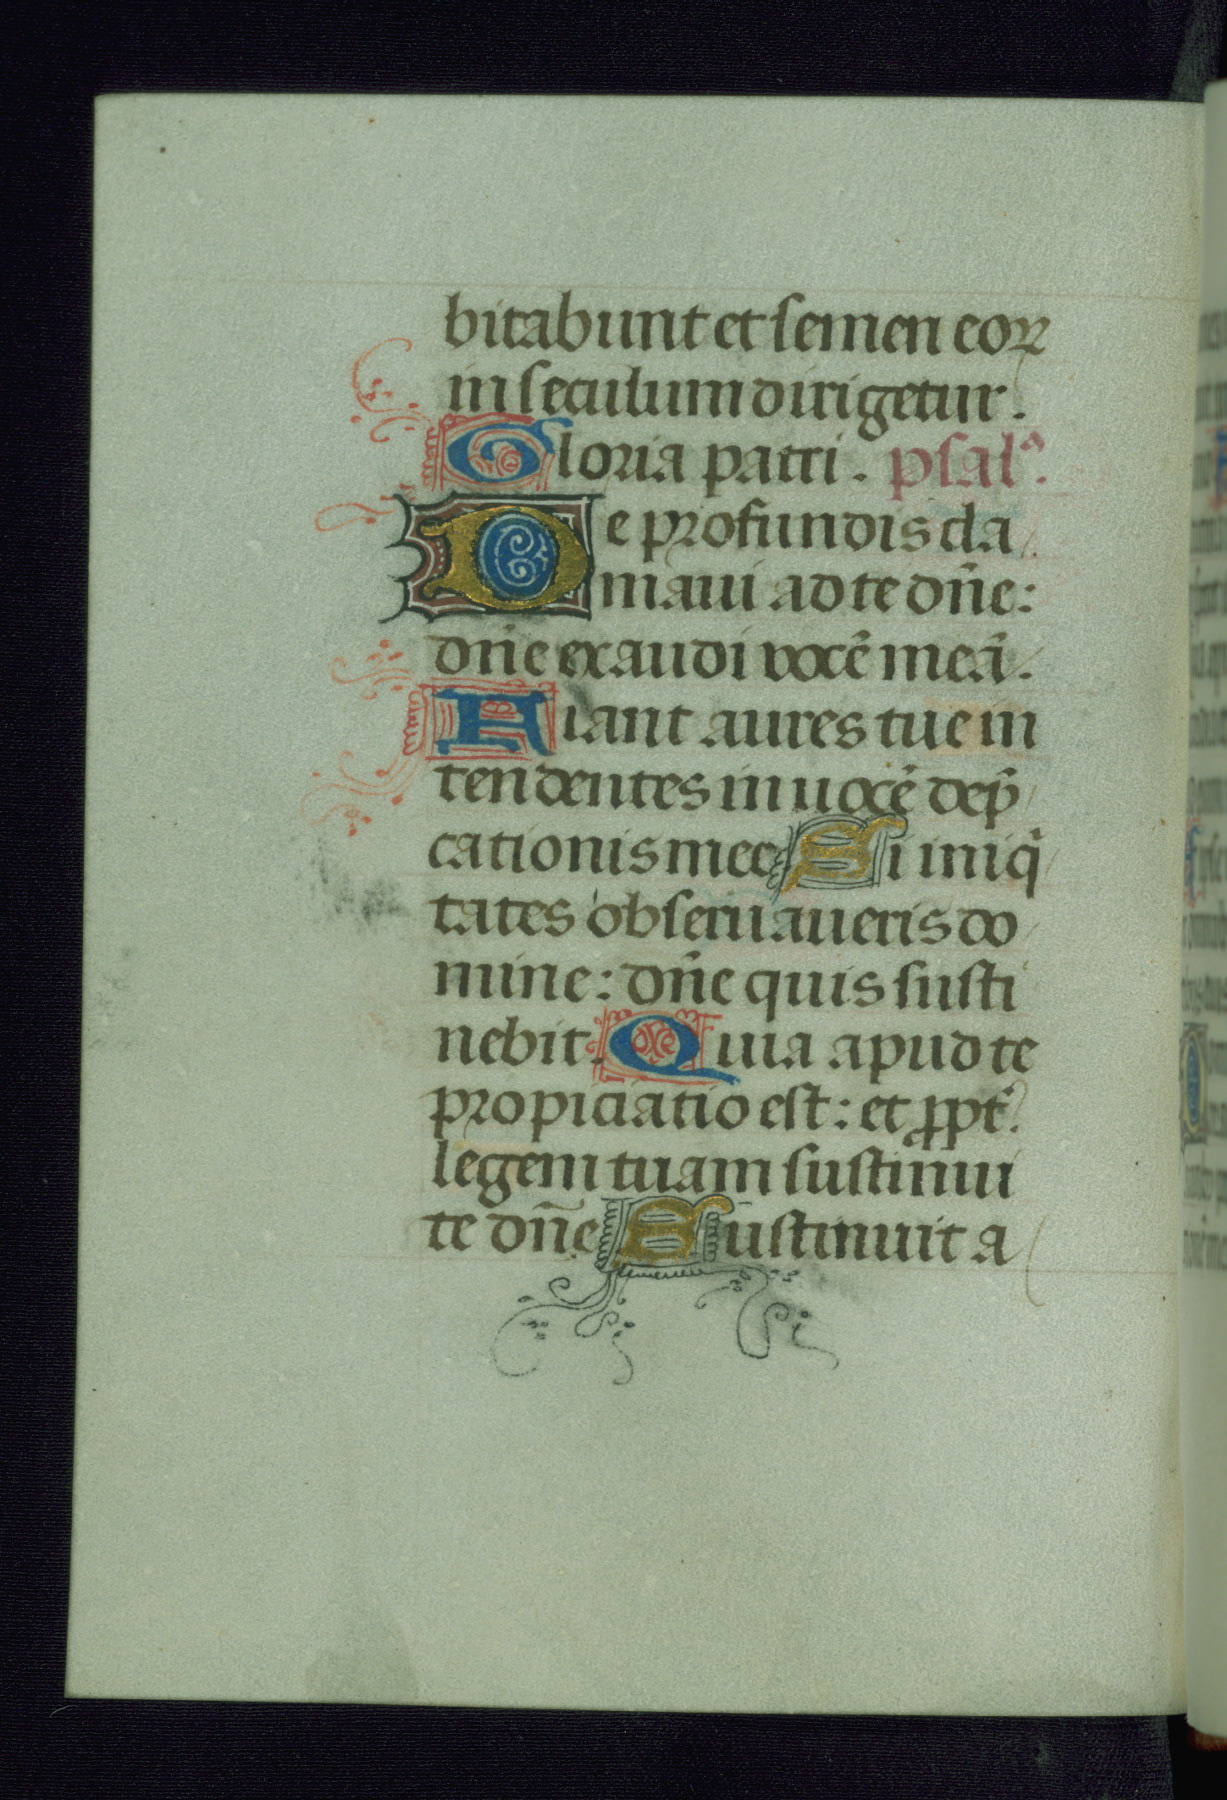 bitabunt et semen eoꝝ
in seculum dirigetur.
Gloria patri. psal᷒.
De profundis cla
maui ad te dn̄e:
dn̄e exaudi vocē meā.
Fiant aures tue in
tendentes in uocē dep̄
cationis mee Si iniqͥ
tates obseruaueris do
mine: dn̄e quis susti
nebit. Quia apud te
propiciatio est: et ꝓpt̄
legem tuam sustinui
te dn̄e Sustinuit a